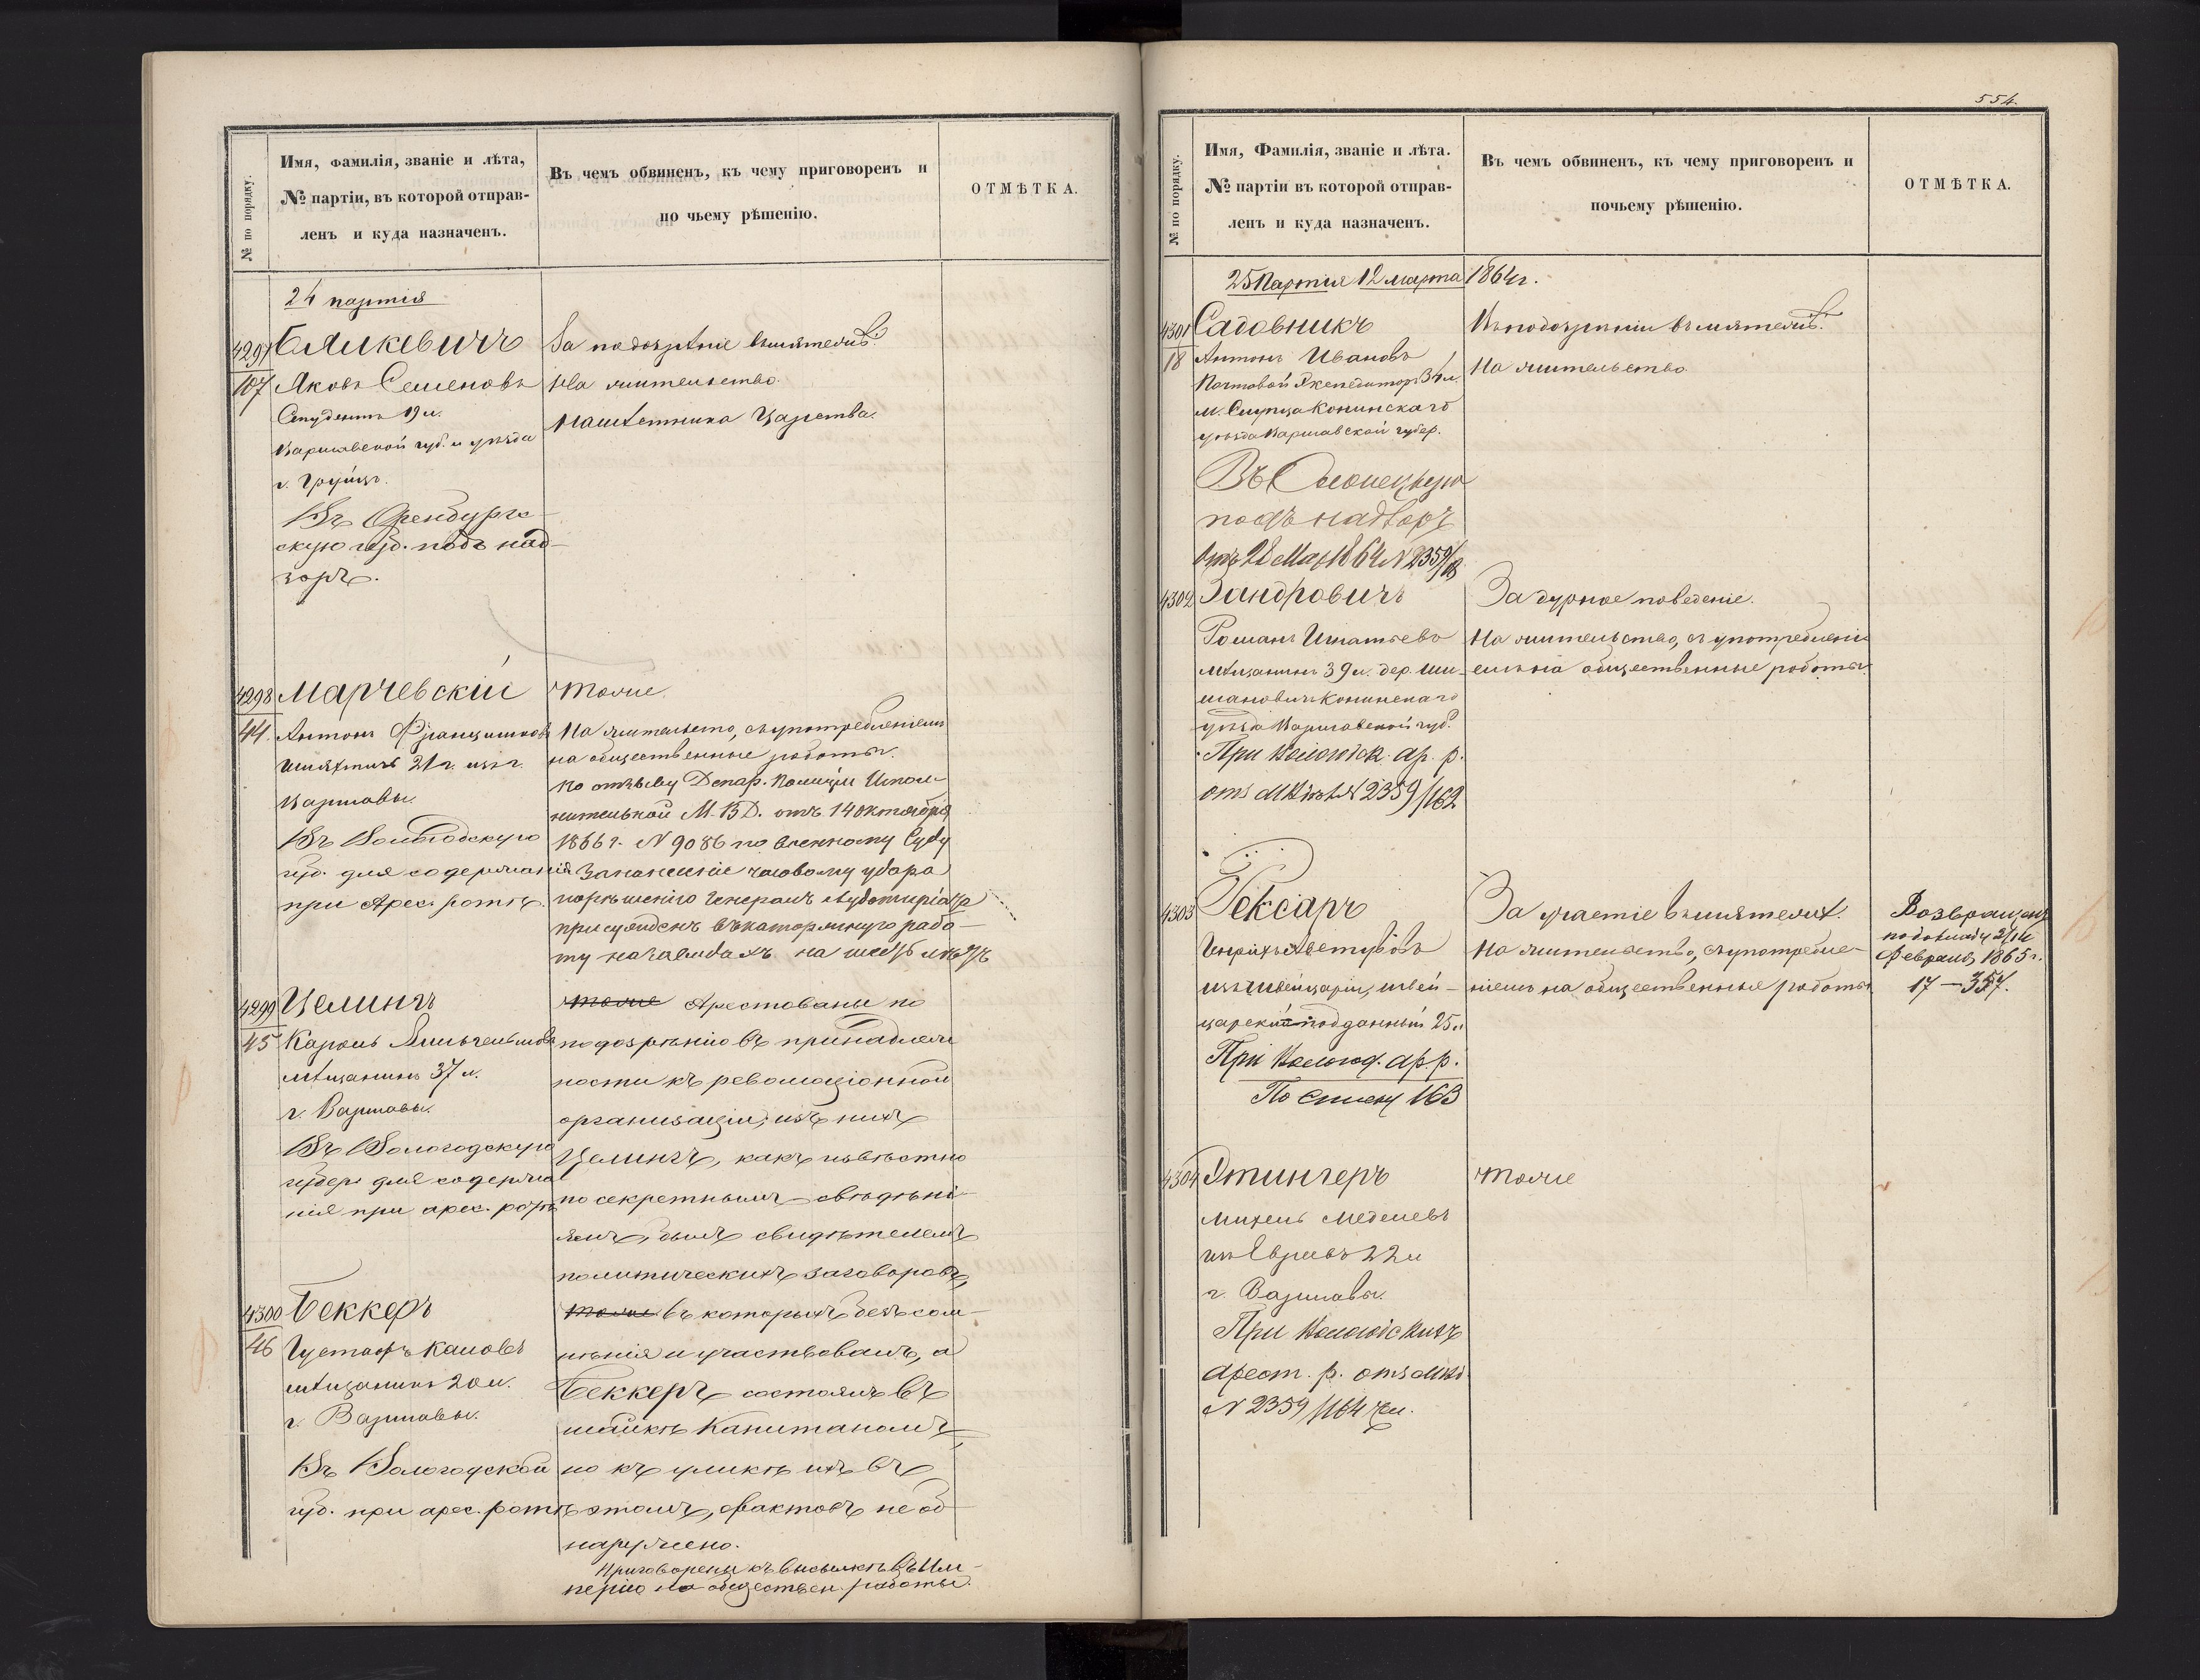 № по порядку.
Имя, фамилія, званіе и лѣта,
№ партіи, въ которой отправ-
ленъ и куда назначенъ.
Въ чемъ обвиненъ, къ чему приговоренъ и
по чьему рѣшенію.
ОТМѢТКА.
24 партія
4297
107
Яковъ Семеновъ
Студентъ 19 л.
Варшавской губ. и уѣзда
г. Груйцъ.
Въ Оренбург-
скую губ. подъ над-
зоръ.
За подозрѣніе въ мятежѣ.
На жительство.
Намѣстника Царства.
4298
44.
Марчевскій
Антонъ Францишковъ
Шляхтичъ 21 г. изъ г.
Варшавы.
Въ Вологодскую
губ. для содержанія
при Арес. ротѣ.
Тоже.
На жительство, съ употребленіемъ
на общественные работы.
По отзыву Депар. Полиціи Испол-
нительной М.В.Д. отъ 14 октября
1866 г. № 9086 по военному Суду
за нанесеніе часовому удара
по рѣшенію Генералъ Аудиторіата
присужденъ въ каторжную рабо-
ту на заводахъ на шесть лѣтъ
4299
45
Целингъ
Кароль
мѣщанинъ 37 л.
г. Варшавы.
Въ Вологодскую
губер. для содержа
нія при арес. ротѣ
Тоже Арестованы по
подозрѣнію въ принадлеж
ности къ революціонной
организаціи; изъ нихъ
Целингъ, какъ извѣстно
по секретнымъ свѣдѣні-
ямъ, былъ свидѣтелемъ
политическихъ заговоровъ,
4300
46
Беккеръ
Густафъ Каловъ
мѣщанинъ 20 л.
г. Варшавы.
Въ Вологодской
губ. при арес. ротѣ
Тоже въ которыхъ безъ сом-
нѣнія и участвовалъ, а
Беккеръ состоялъ въ
шайкѣ Капитаномъ,
но къ уликѣ ихъ въ
этомъ, фактовъ не об
наружено.
Приговорены къ высылкѣ въ Им-
перію на обществен. работы.
554.
№ по порядку.
Имя, Фамилія, званіе и лѣта.
№ партіи въ которой отправ-
ленъ и куда назначенъ.
Въ чемъ обвиненъ, къ чему приговоренъ и
почьему рѣшенію.
ОТМѢТКА.
25 Партія 12 марта 1864 г.
4301
18
Садовникъ
Антонъ Ивановъ
Почтовой Экспедиторъ 34 л.
м. Слупца Конинскаго
уѣзда Варшавской губер.
Въ Олонецкую
подъ надзоръ
Отъ 28 Мар 1864 № 2359/18
Въ подозрѣніи въ мятежѣ.
На жительство.
4302
Зандровичъ
Романъ Игнатьевъ
Мѣщанинъ 39 л. дер. Ши-
мановичъ Конинскаго
уѣзда Варшавской губ.
При Вологодск. Ар. р.
№ 2359/162
За дурное поведеніе.
На жительство, съ употребленіемъ
на общественные работы.
4303
Гексаръ
Генрихъ Августовъ
изъ Швейцаріи, швей-
царскій подданный 25 л
При Вологод. ар р.
По списку 163
За участіе въ мятежѣ.
На жительство, съ употребле-
ніемъ на общественные работы.
Возвращенъ
по докладу 2/14
Февраля 1865 г.
17 — 357.
4304
Этингеръ
Михель Меделевъ
изъ Евреевъ 22 л
г. Варшавы.
При Вологодскихъ
арест. р.
№ 2359/164
Тоже